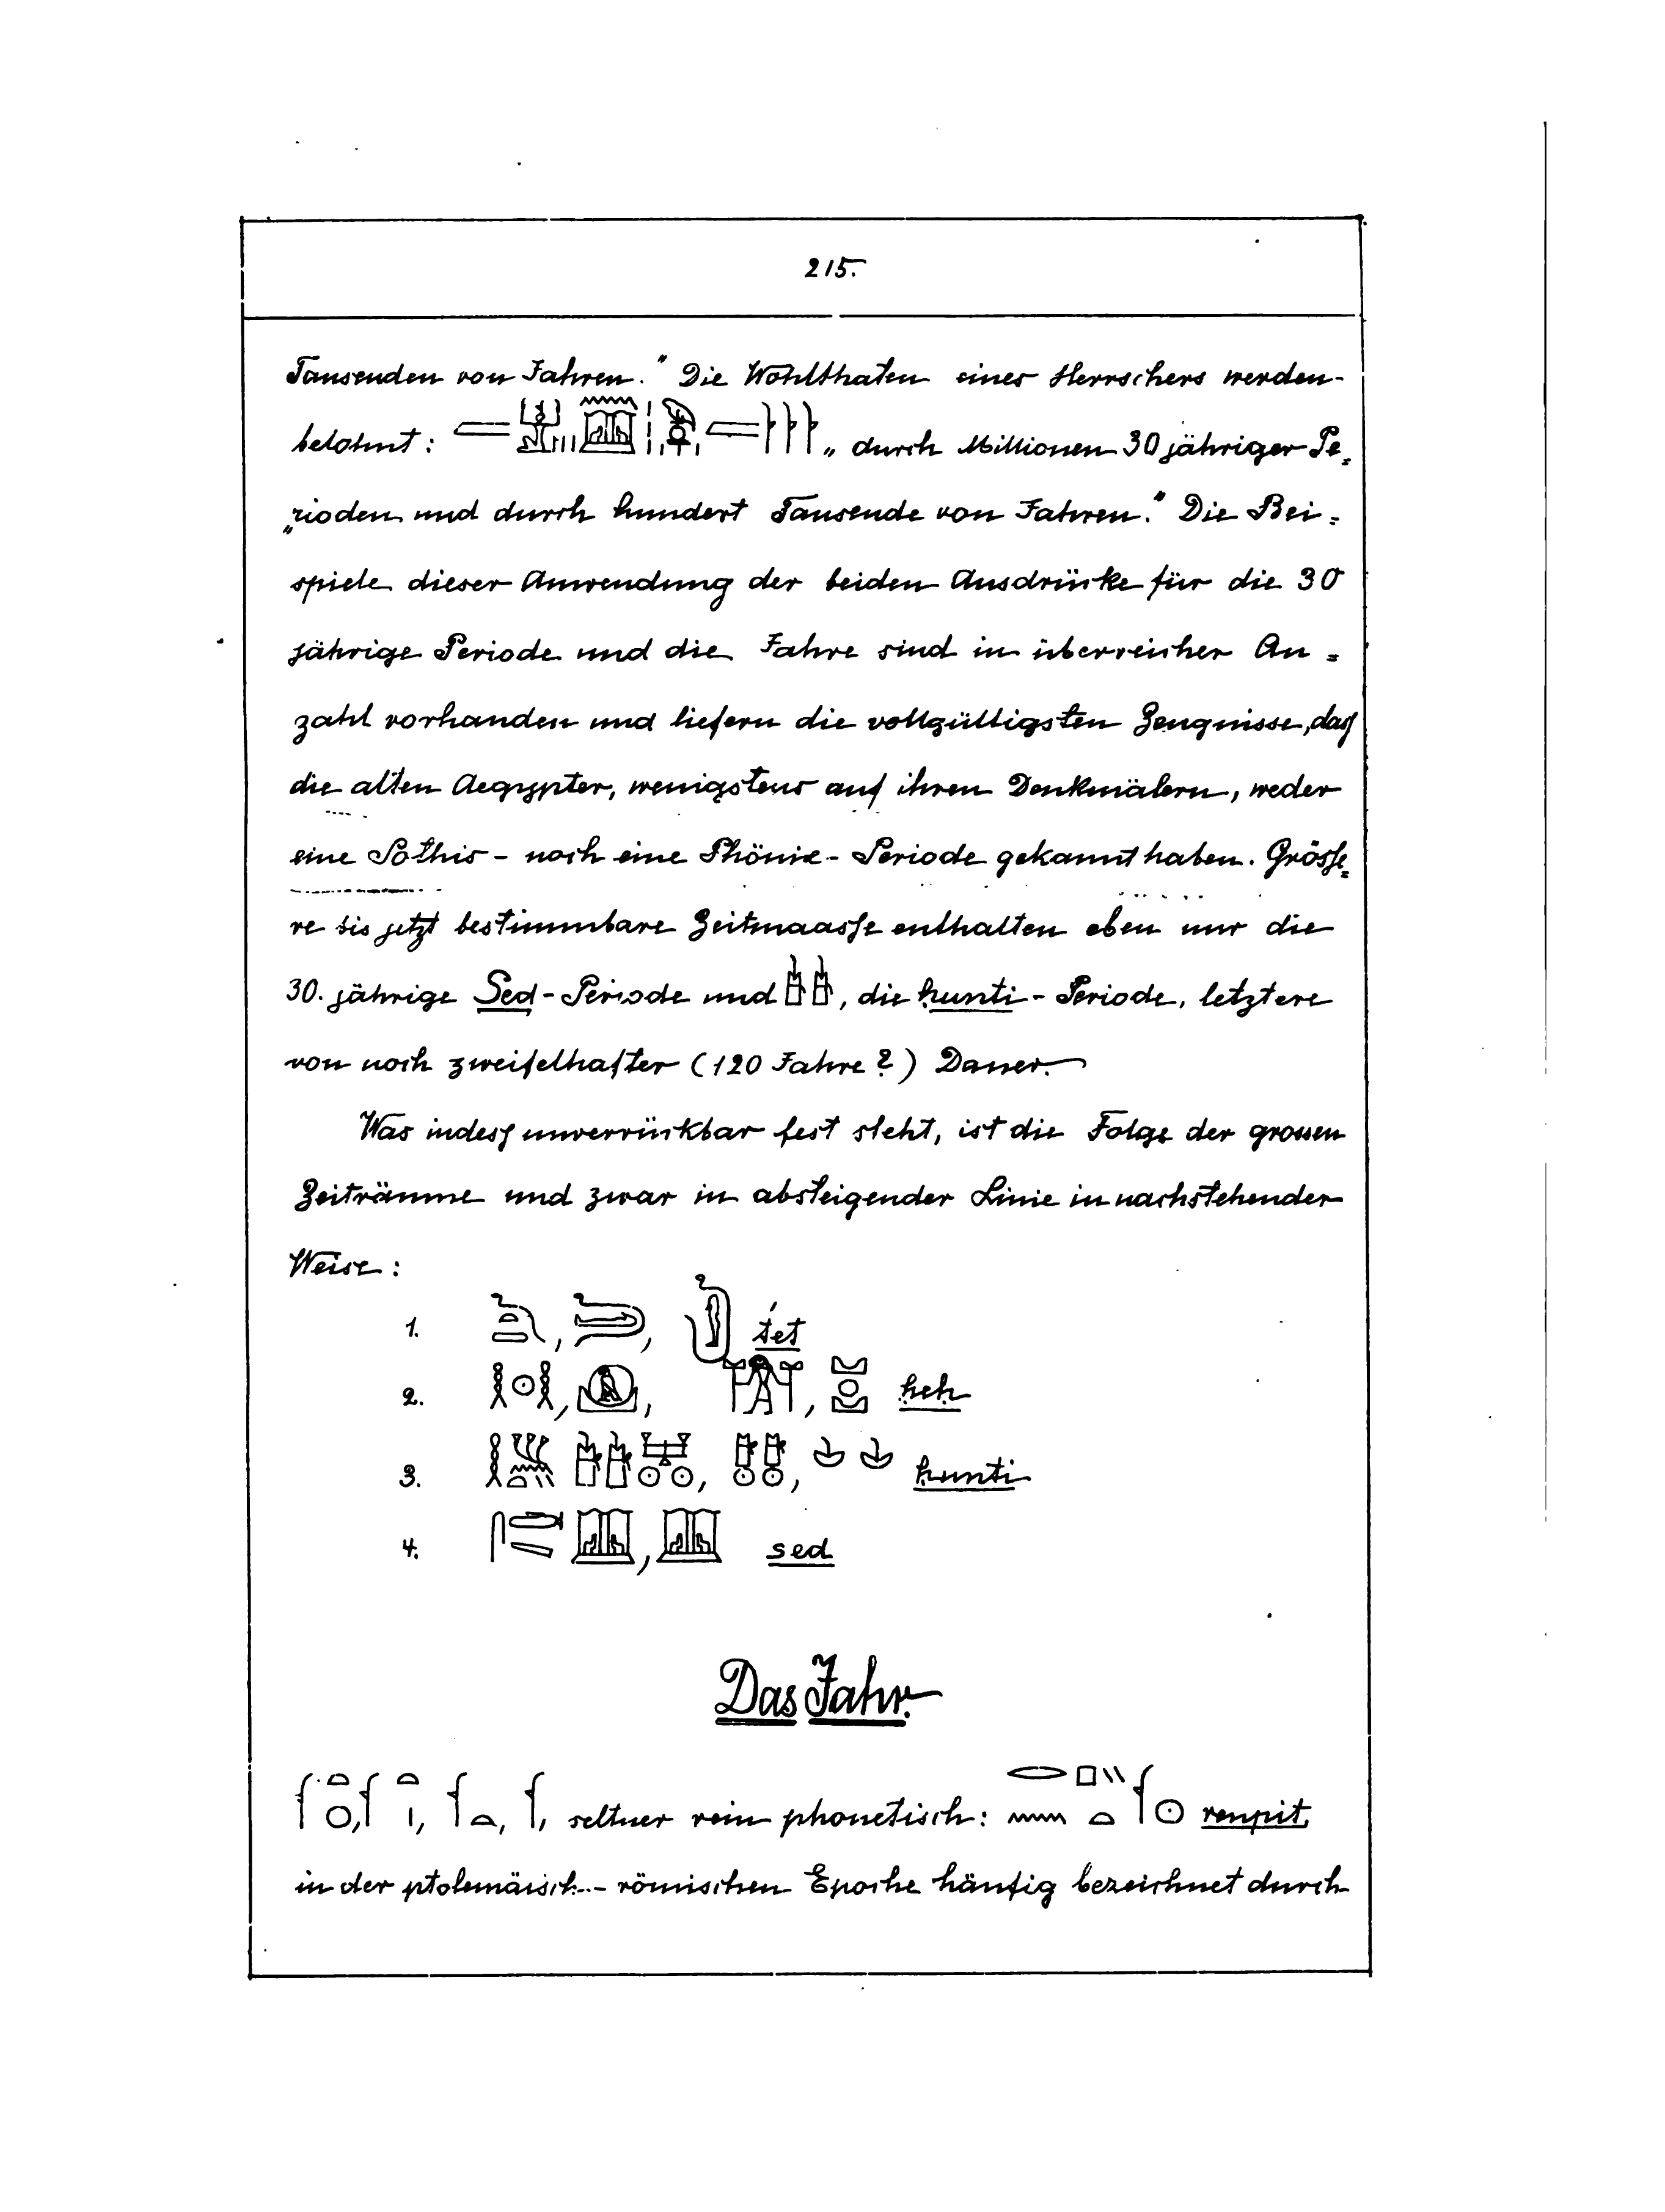 215.
Tausenden von Jahren." Die Wohlthaten eines Herrschers werden
belohnt: „durch Millionen 30 jähriger Pe=
„rioden und durch hundert Tausende von Jahren." Die Bei=
spiele dieser Anwendung der beiden Ausdrücke für die 30
jährige Periode und die Jahre sind in überreicher An=
zahl vorhanden und liefern die vollgültigsten Zeugnisse, daß
die alten Aegypter, wenigstens auf ihren Denkmälern, weder
eine Sothis- noch eine Phönix-Periode gekannt haben. Größe=
re bis jetzt bestimmbare Zeitmaaße enthalten eben nur die
30. jährige Sed-Periode und , die ḥunti-Periode, letztere
von noch zweifelhafter (120 Jahre?) Dauer.
Was indeß unverrückbar fest steht, ist die Folge der grossen
Zeiträume und zwar in absteigender Linie in nachstehender
Weise:
1. , , t́et
2. , , , ḥeḥ
3. , , ḥunti
4. , sed
Das Jahr.
, , , , seltner rein phonetisch: renpit,
in der ptolemäisch-römischen Epoche häufig bezeichnet durch